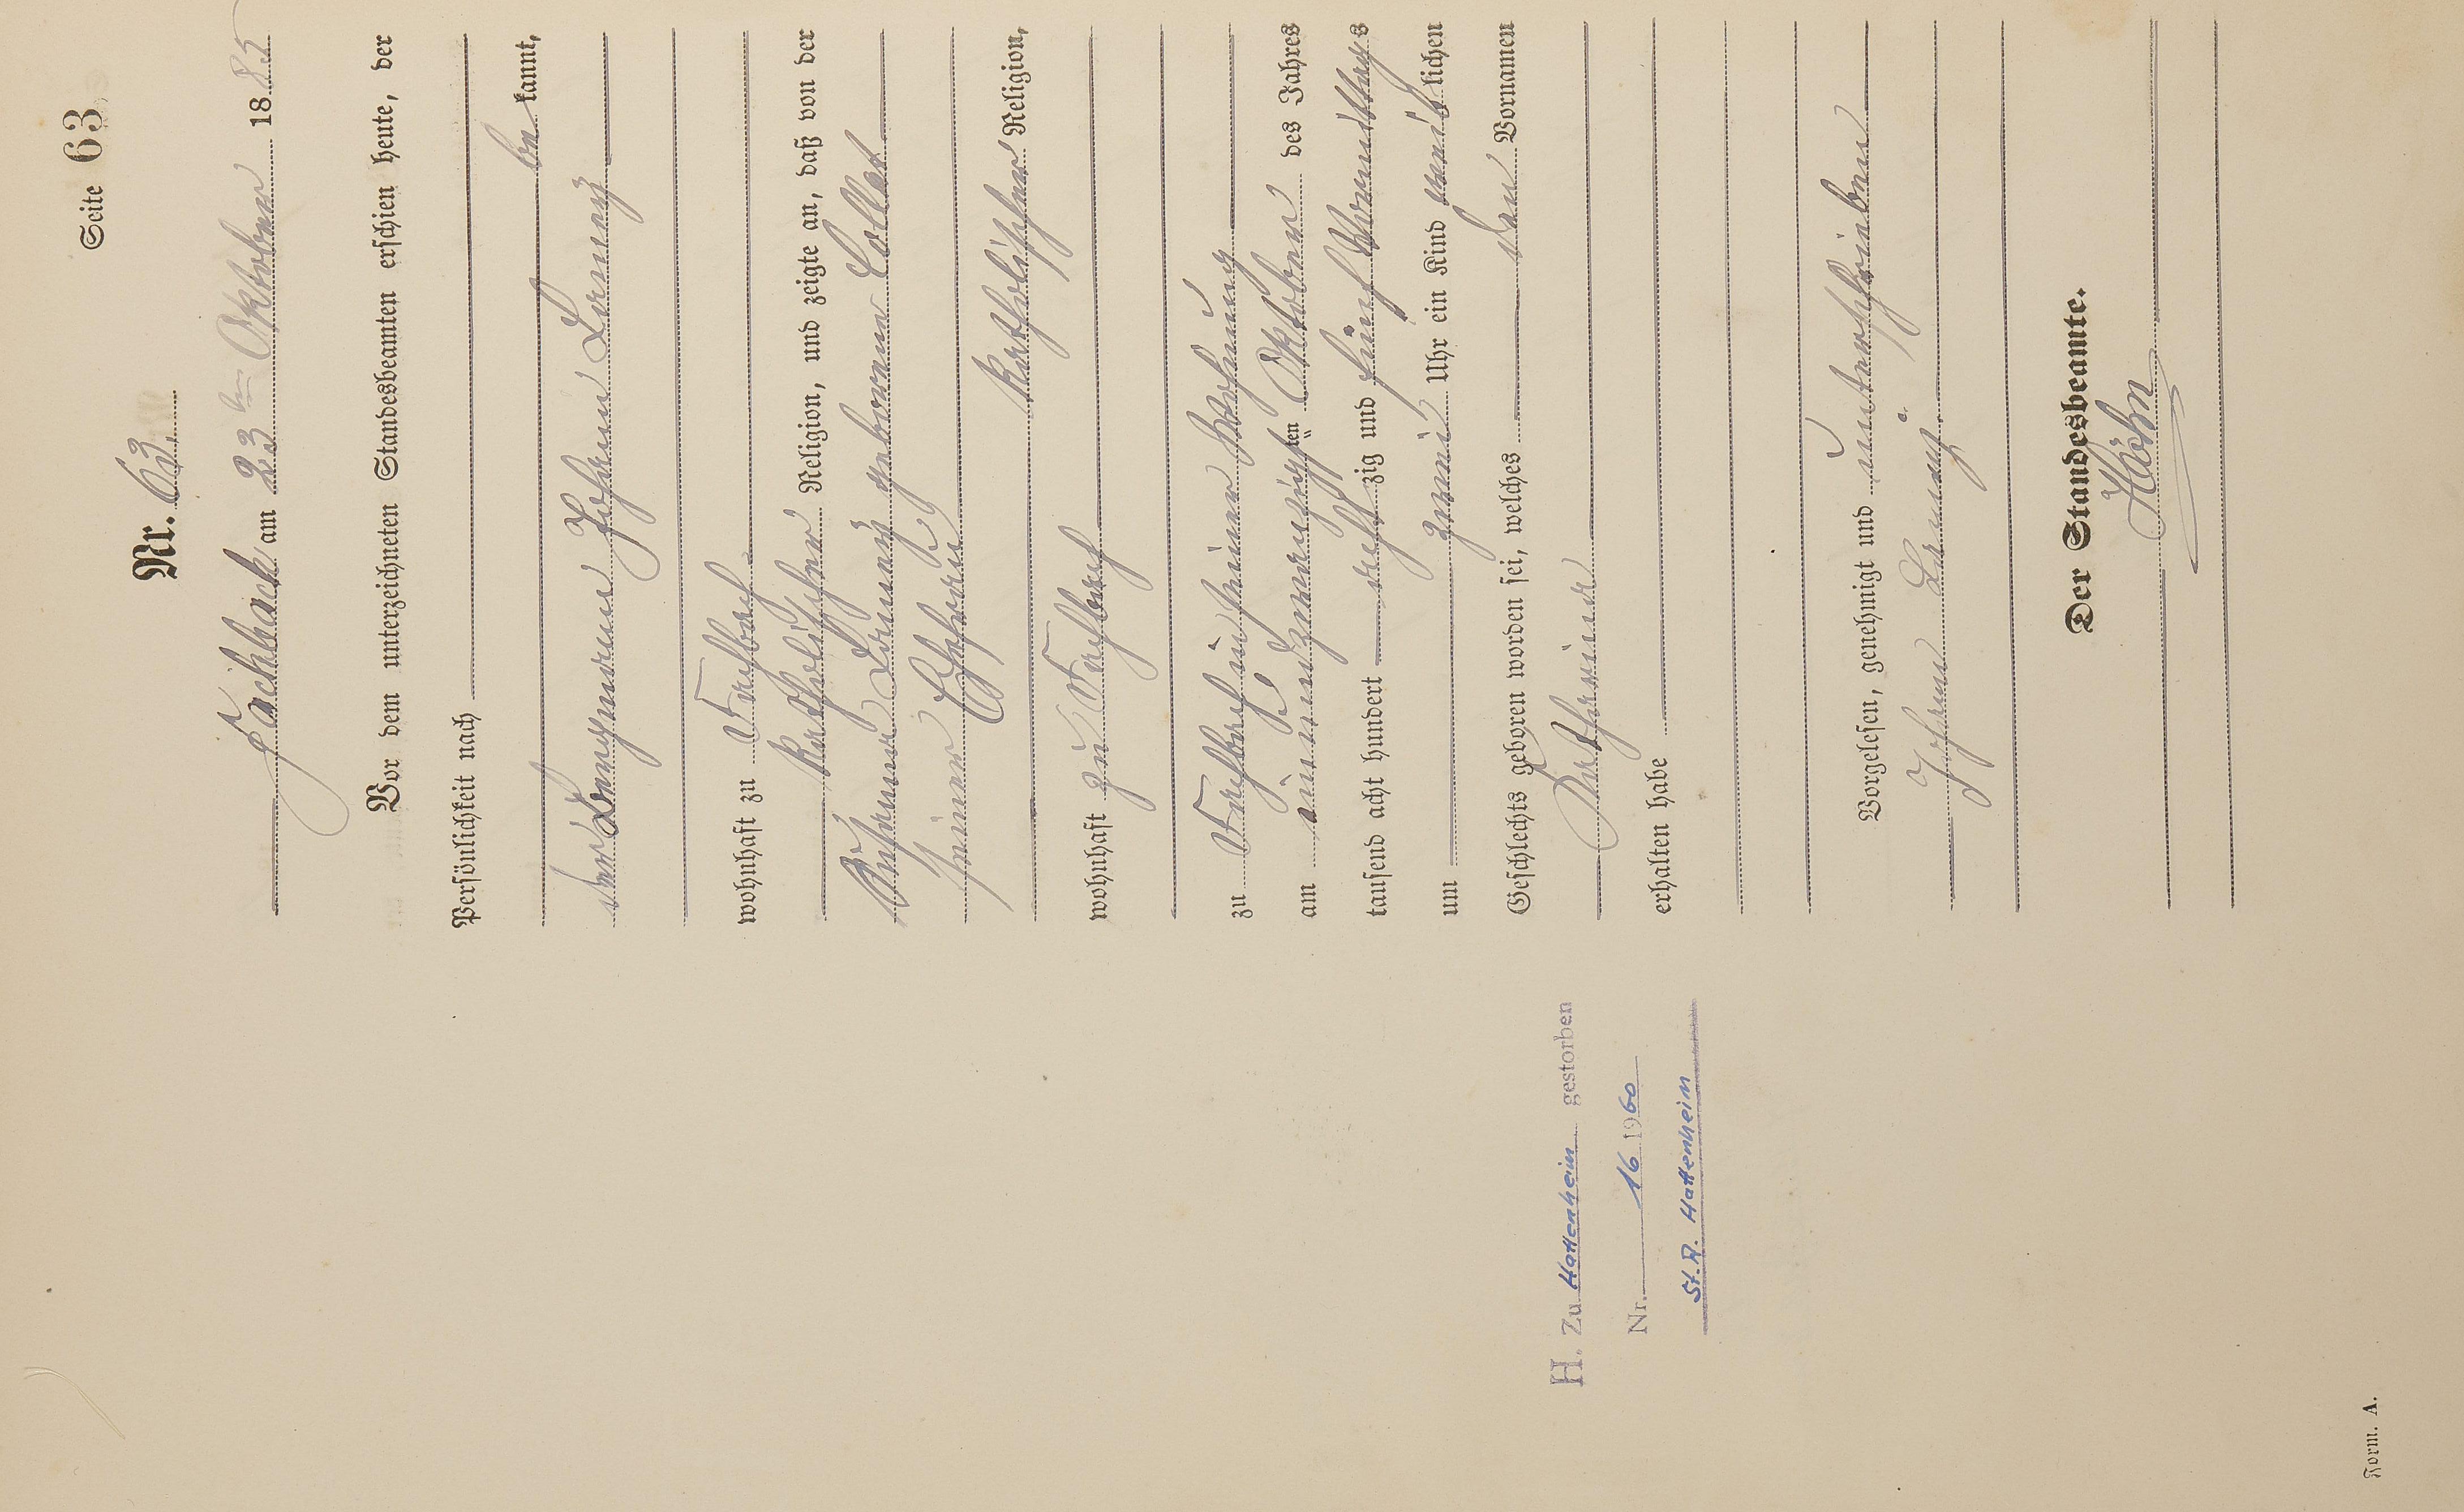 Seite 63
Nr. 63.
Fachbach am 23ten Oktober 1885
Vor dem unterzeichneten Standesbeamten erschien heute, der
Persönlichkeit nach
be kannt,
der Bergmann Johann
wohnhaft zu Fachbach
katholischer Religion, und zeigte an, daß von der
geborenen Collet
seiner Ehefrau
katholischer Religion,
wohnhaft zu Fachbach
zu Fachbach in seiner Wohnung
am einundzwanzigsten Oktober des Jahres
tausend acht hundert acht zig und fünf Vormittags
um zwei Uhr ein Kind weiblichen
Geschlechts geboren worden sei, welches den Vornamen
Katharina
erhalten habe
Vorgelesen, genehmigt und unterschrieben
Johann
Der Standesbeamte.
Höhn
H. Zu Hattenheim gestorben
Nr. 16 1960
St.A. Hattenheim
Form. A.